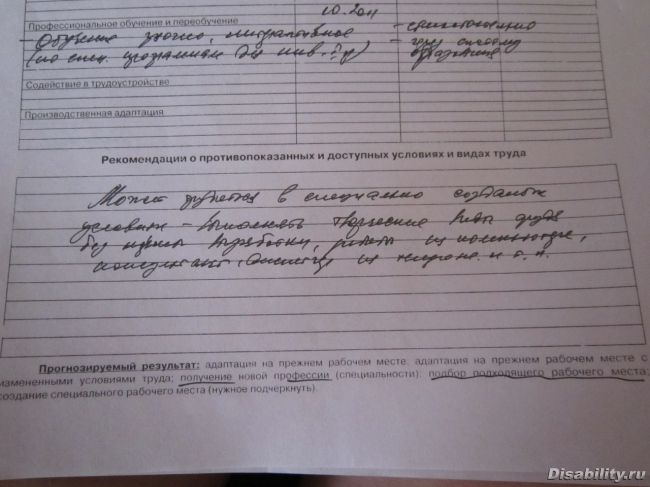 10.2011
Профессиональное обучение и переобучение
- Обучение заочно, интегративное - самостоятельно
(по спец. программам для инв. ) - через систему
образования
Содействие в трудоустройстве
Производственная адаптация
Рекомендации о противопоказанных и доступных условиях и видах труда
Может трудиться в специально созданных
условиях - выполнять творческие виды труда
без нормы выработки, работы на компьютере,
консультант, диспетчер на телефоне и т. п.
Прогнозируемый результат: адаптация на прежнем рабочем месте; адаптация на прежнем рабочем месте с
измененными условиями труда; получение новой профессии (специальности); подбор подходящего рабочего места;
создание специального рабочего места (нужное подчеркнуть).
Disability.ru